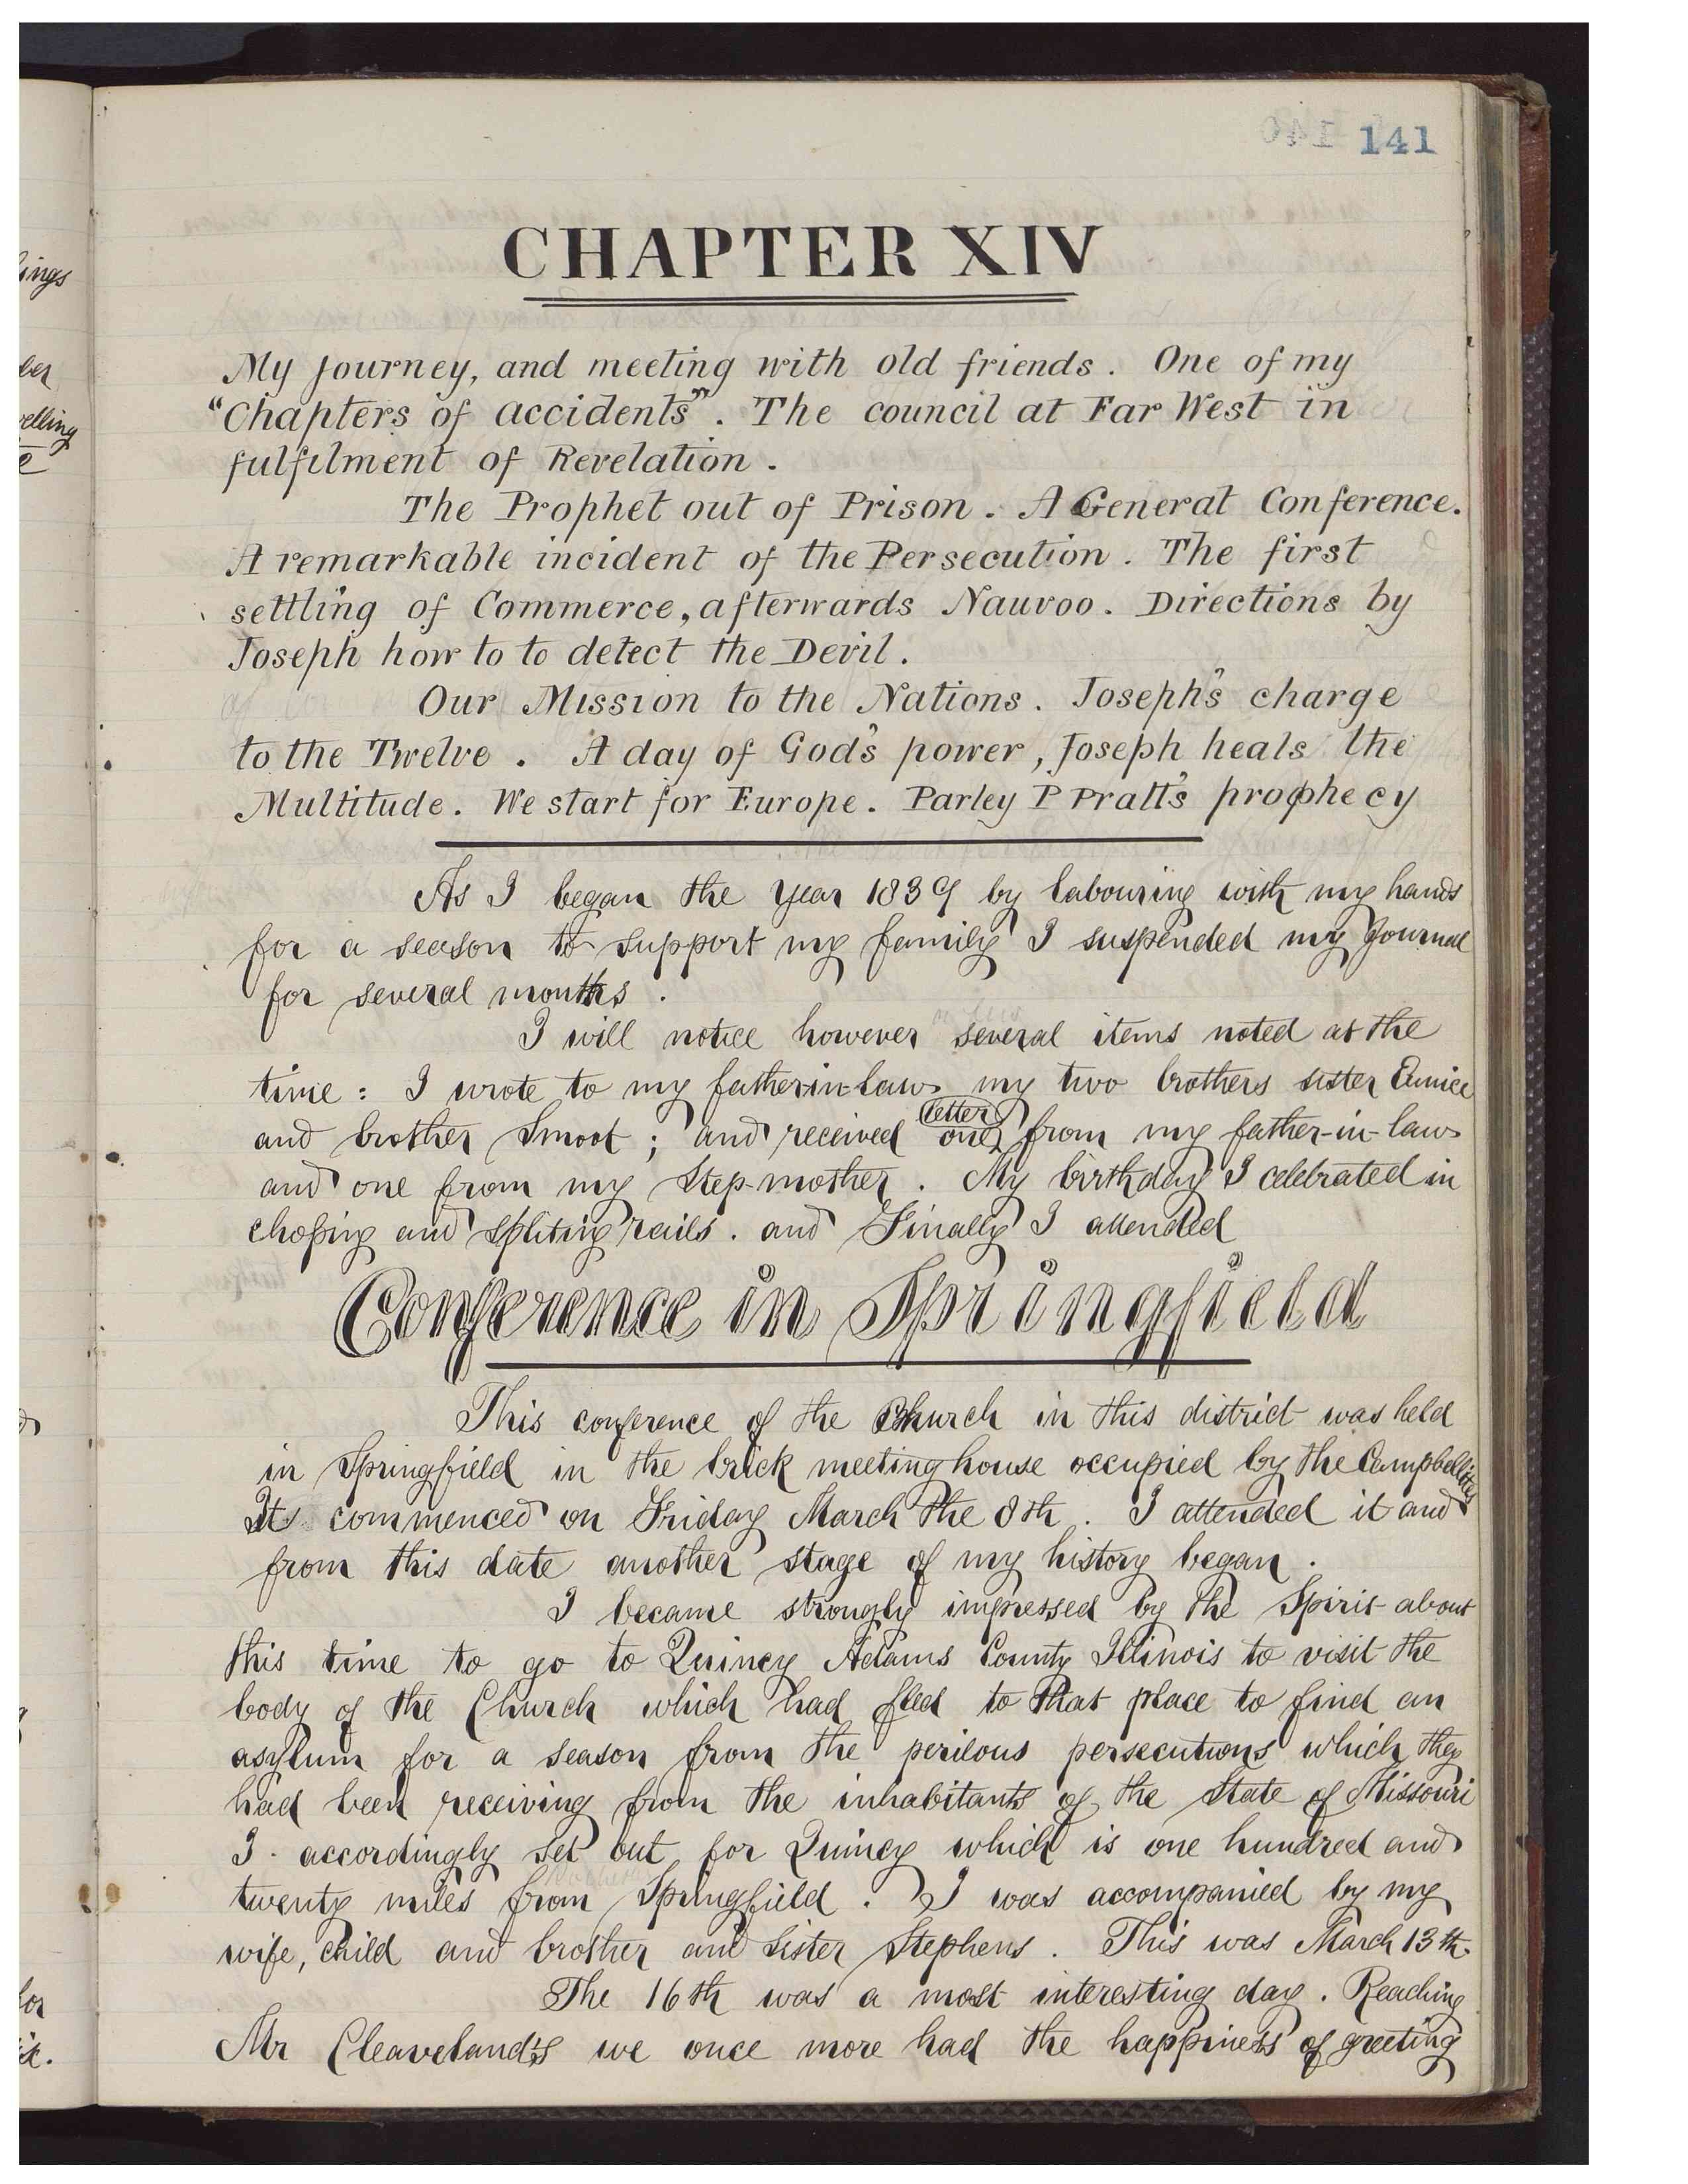 141
CHAPTER XIV
My Journey, and meeting with old friends. One of my
"Chapters of accidents". The council at Far West in
fulfilment of Revelation.
The Prophet out of Prison. A General Conference.
A remarkable incident of the Persecution. The first
settling of Commerce, afterwards Nauvoo. Directions by
Joseph how to to detect the Devil.
Our Mission to the Nations. Joseph's charge
to the Twelve. A day of God's power, Joseph heals the
Multitude. We start for Europe. Parley P Pratt's prophecy
As I began the year 1839 by labouring with my hands
for a season to support my family I suspended my Journal
for several months.
I will notice however several items noted at the
time: I wrote to my father-in-law my two brothers sister Eunice
and brother Smoot; and received one letter from my father-in-law
and one from my Step-mother. My birthday I celebrated in
choping and spliting rails. and Finally I attended
Conference in Springfield
This conference of the Church in this district was held
in Springfield in the brick meeting house occupied by the Campbellites
It commenced on Friday March the 8th. I attended it and
from this date another stage of my history began.
I became strongly impressed by the Spirit about
this time to go to Quincy Adams County Illinois to visit the
body of the Church which had fled to that place to find an
asylum for a season from the perilous persecutions which they
had been receiving from the inhabitants of the State of Missouri
I accordingly set out for Quincy which is one hundred and
twenty miles from Springfield. I was accompanied by my
wife, child and brother and sister Stephens. This was March 13th.
The 16th was a most interesting day. Reaching
Mr Cleaveland's we once more had the happiness of greeting